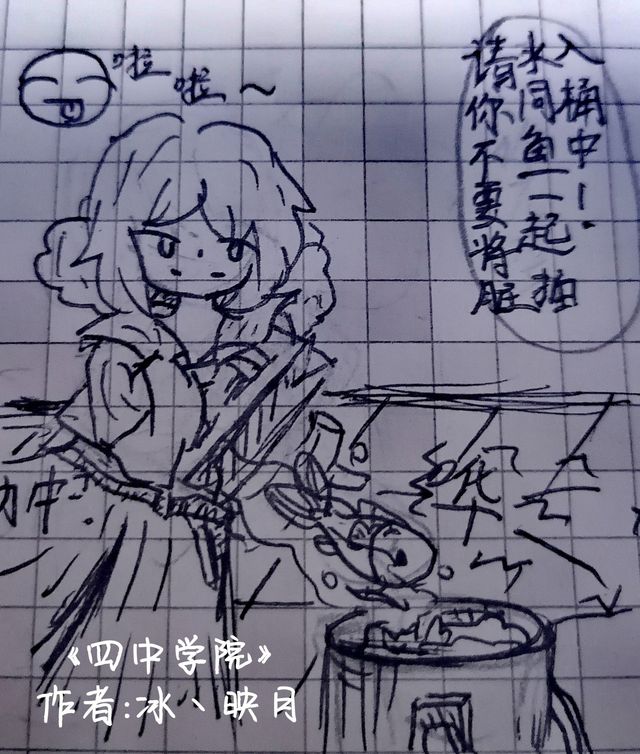 啦啦～
请你不要将脏
水同鱼一起抽
入桶中！
华
《四中学院》
作者:冰丶映月